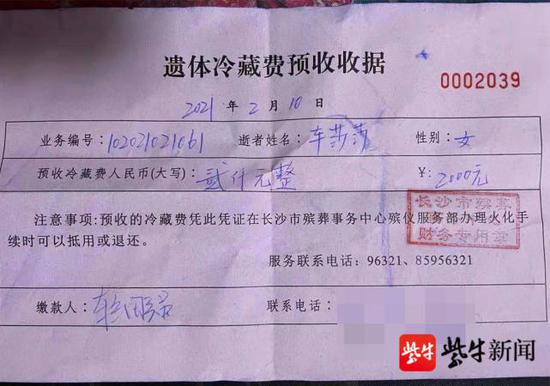 遗体冷藏费预收收据
0002039
2021年2月10日
业务编号:102021021061 逝者姓名:车莎莎 性别:女
预收冷藏费人民币(大写):贰仟元整 ¥:2000元
注意事项:预收的冷藏费凭此凭证在长沙市殡葬事务中心殡仪服务部办理火化手
续时可以抵用或退还。
长沙市殡葬
财务专用章
服务联系电话:96321、85956321
缴款人:车 联系电话:
紫牛 紫牛新闻